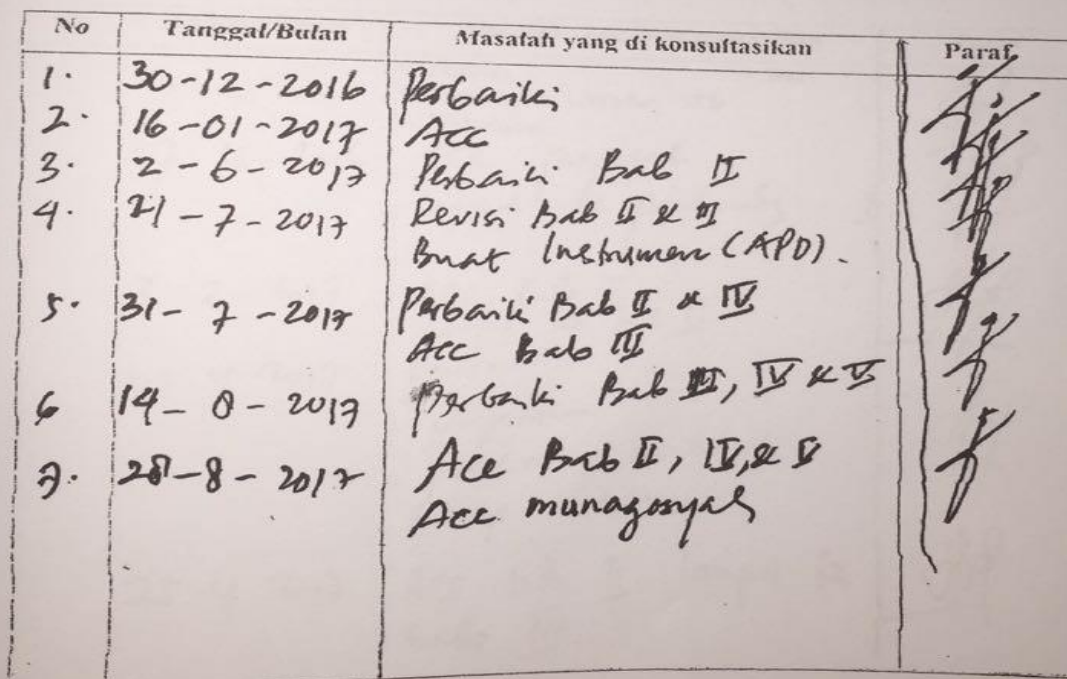 No Tanggal/Bulan Masalah yang di konsultasikan Paraf
1. 30-12-2016 Perbaiki
2. 16-01-2017 Acc
3. 2-6-2017 Perbaiki Bab II
4. 21-7-2017 Revisi Bab II & III
Buat Instrumen (APD).
5. 31-7-2017 Perbaiki Bab II & IV
Acc Bab III
6 14-8-2017 Perbaiki Bab III, IV & V
7. 28-8-2017 Acc Bab II, IV, & V
Acc munaqosyah